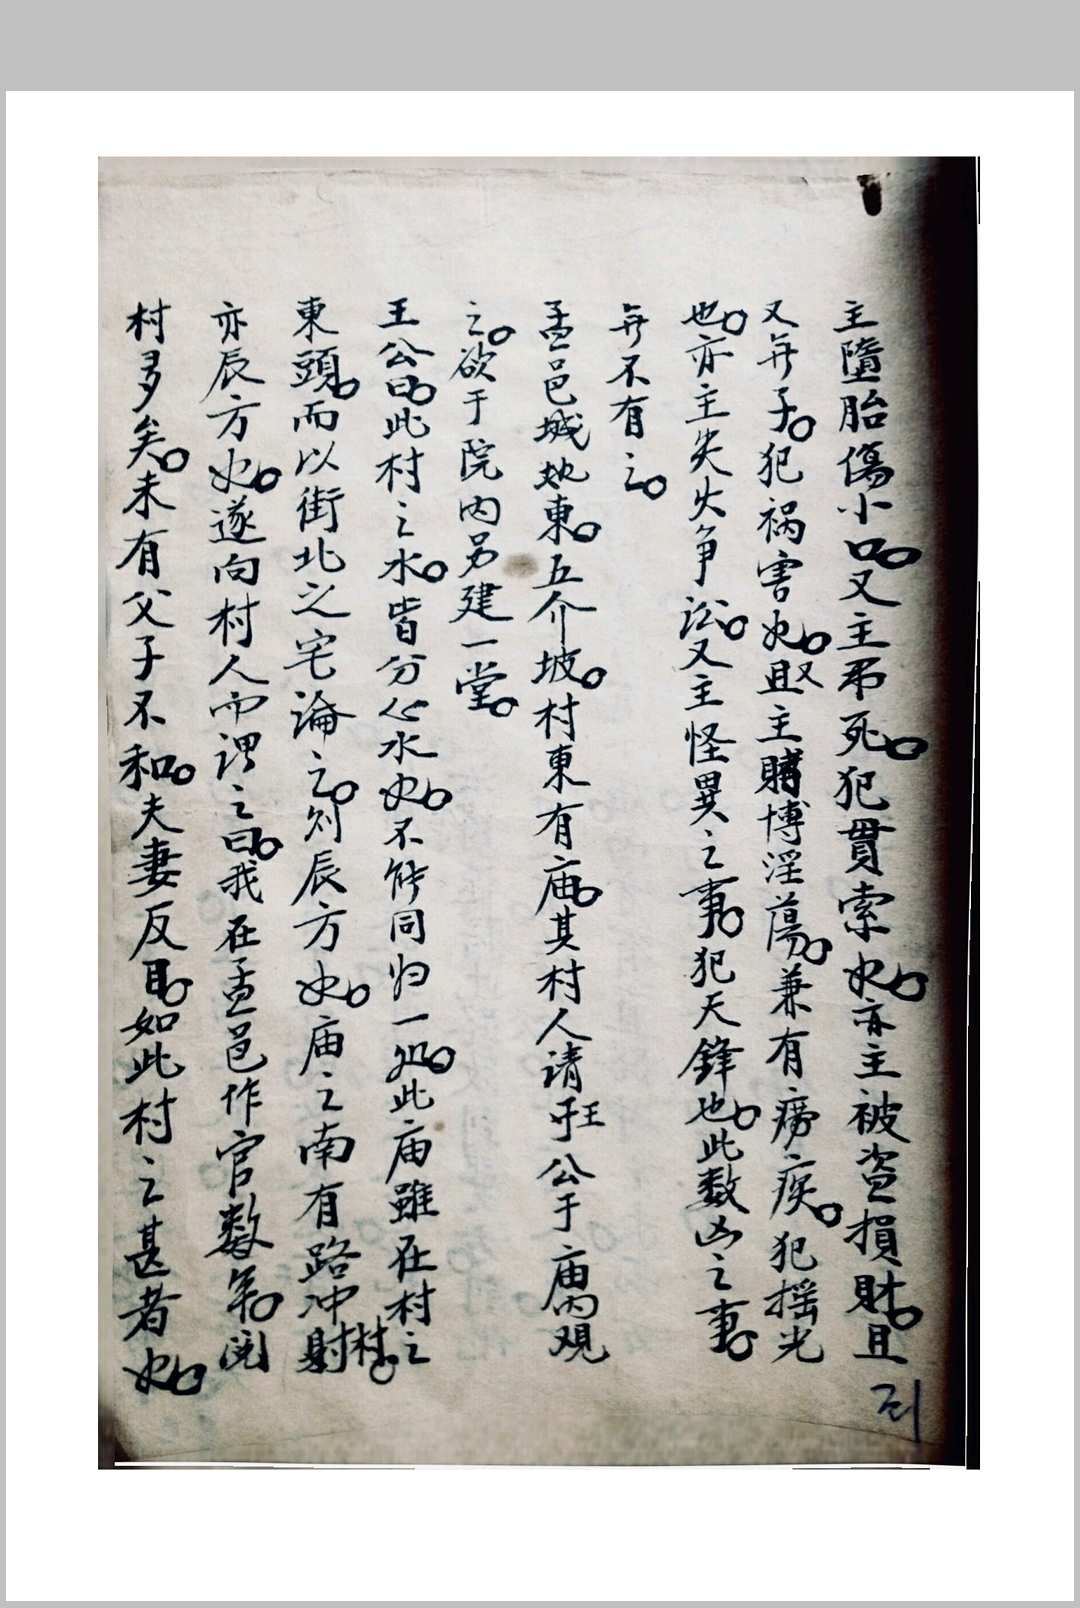 主墮胎傷小口。又主吊死。犯貫索也。亦主被盜損財。且
又無子。犯祸害也。且又主賭博淫蕩。兼有癆疾。犯揺光
也。亦主失火争訟。又主怪異之事。犯天鋒也。此数凶之事。
無不有之。
孟邑城址東。五介坡。村東有庙。其村人请王公于庙内观
之。欲于院内另建一堂。
王公曰。此村之水。皆分心水也。不能同归一処。此庙雖在村之
東頭。而以街北之宅論之。则辰方也。庙之南有路冲射村。
亦辰方也。遂向村人而谓之曰。我在孟邑作官数年。阅
村多矣。未有父子不和。夫妻反目。如此村之甚者也。